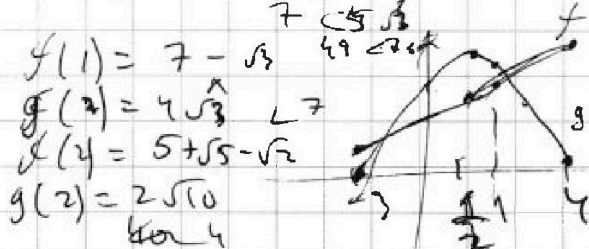 7 < 5√3
49 < 75
f(1) = 7 - √3
g(1) = 4√3 < 7
f(2) = 5+√5-√2
g(2) = 2√10
f
g
-3 1/2 1 4